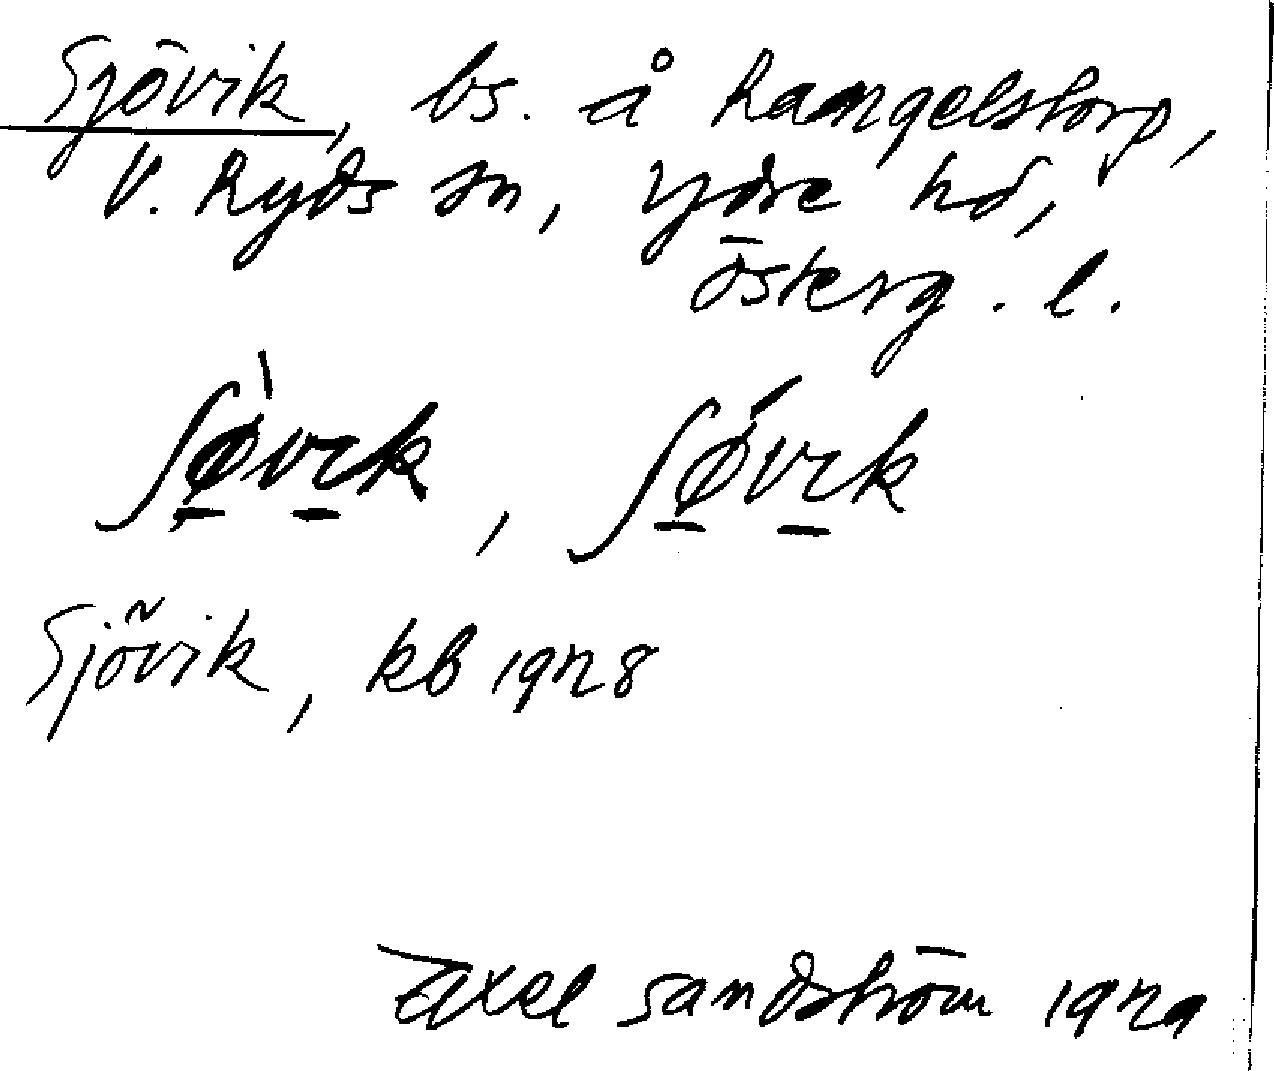 Sjövik, bs. å Ramgelstorp,
V. Ryds sn, Ydre hd,
Österg. l.
ʃø̀vɪk, ʃǿvɪk
Sjövik, kb 1928
Axel Sandström 1929